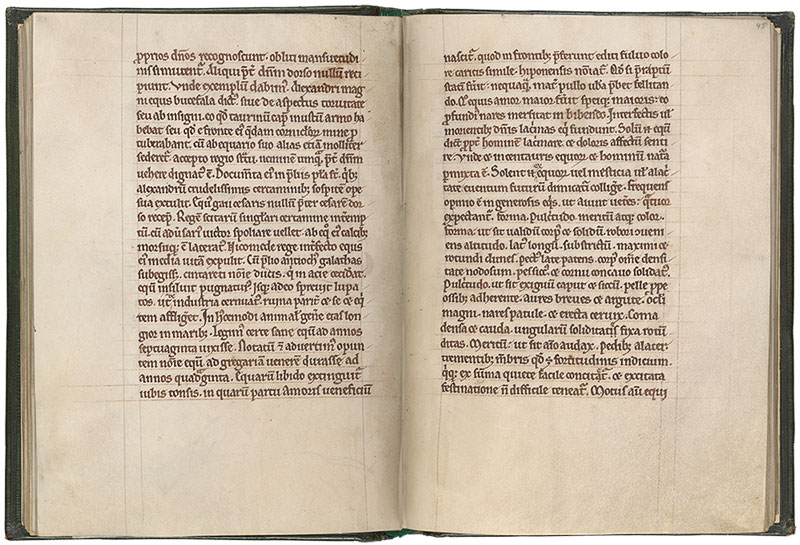 ꝓprios dños recognoscunt. obliti mansuetudi
nis si mutent᷑. Aliqui p̄t dñm dorso nullū reci
piunt. Vnde exemplū dabim᷒. Alexandri mag
ni equus bucefala dict᷒. siue de aspectus toruitate
seu ab insigni. eo qd̄ taurinū cap᷒ inustū armo ha
bebat seu qd̄ e fronte ei᷒ q̇dam corniculoꝝ mine ꝓ
tuberabant. cū ab equario suo alias etiā molliter
sederet᷑. accepto regio st̄tu. neminē umq̄ p̄t dñm
uehere dignat᷒ ē. Docum̄ta ei᷒ in p̄liis pl̄a s̄t. qͥb;
alexandrū crudelissimis certaminib; sospitē ope
sua extulit. Eq̄ū gaii cesaris nullū p̄ter cesarē dor
so recep̄. Regē scitarū singlari certamine int̄emp
tū. cū adūsari᷒ uictor spoliare uellet. ab eq̄ ei᷒ calcib;
morsuq; ē lacerat᷒. Nicomede rege int̄fecto equus
ei᷒ inedia uitā expulit. Cū p̄lio antioch᷒ galathas
subegiss;. cintareti nōie ducis. q̇ in acie cecidat.
eq̄ū insiluit pugnatur᷒. isq; adeo spreuit lupa
tos. ut᷑ industria cernuat᷒. ruina pariť ꞇ se ꞇ eq̇
tem affliget. In hui᷒modi animal᷒ gen̄e etas lon
gior in marib;. Legim᷒ certe sane eq̄ū ad annos
septuaginta uixisse. Notatū ꞇ aduertim᷒ opun
tem nōie eq̄ū ad gregariam uenerē durasse ad
annos quadͣginta. Equarū libido extinguit᷑
iubis tonsis. in quarū partu amoris ueneficiū
45
nascit᷑. quod in frontib; p̄ferunt editi fuluo colo
re caricis simile. hiponensis noīat᷑. Qd̄ si p̄reptū
stati fu͛it. nequaq̄. mat᷑ pullo ub̄a p̄bet fellitan
do. Eq̄s quo maior fuit speiq; maioris. eo
ꝓfundi᷒ nares mersitat in bibendo. Interfectis ul̄
morientib; dn̄is lac̓mas eq̇ fundunt. Solū ꞇ eq̄ū
dict̄ ꝓpt̄ hominē lac̓mare. ꞇ doloris affectū senti
re. Vnde ꞇ in centauris equoꝝ ꞇ hominū nat̄a
p̄mixta ē. Solent ꞇ ex equoꝝ uel mestitia ul̄ alac̓
tate euentum futurū dimicaturi collig̓e. Frequens
opinio ē in generosis eq̇s. ut aiunt uet̄es: q̄tuor
expectant᷑. forma. pulc̓tudo. meritū. atq; color.
forma: ut sit ualidū corp᷒ ꞇ solidū. robori ꝯueni
ens altitudo. lat᷒ longū. substrictū. maximi ꞇ
rotundi clunes. pect᷒ late patens. corp᷒ om̄e densi
tate nodosum. pes siccᵒ. ꞇ cornu concauo solidat᷒.
Pulc̓tudo. ut sit exiguū caput ꞇ siccū. pelle ꝓpe
ossib; adherente. aures breues ꞇ argute. oc̄li
magni. nares patule. ꞇ erecta ceruix. coma
densa ꞇ cauda. ungularū soliditatis fixa rotūn
ditas. Meritū: ut sit aīo audax. pedib; alacer.
trementib; m̄bris. qd̄ ē fortitudinis indicium.
q̇q; ex sūma quiete facile concitat᷑. ꞇ excitata
festinatione n̄ difficile teneat᷑. Motus aūt equi